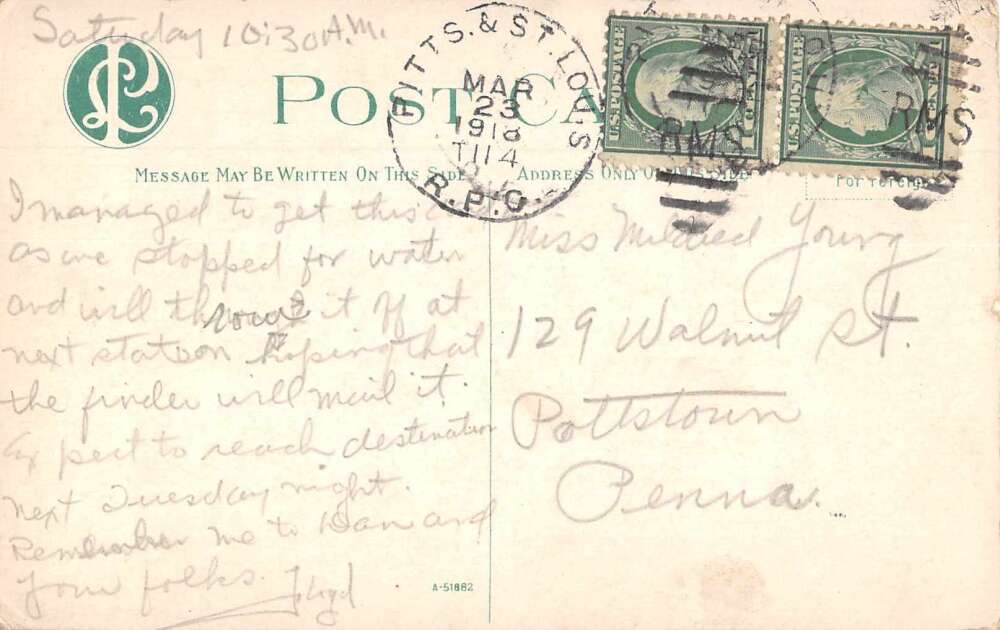 Saturday 10:30 A.M.
POST CA
PITTS. & ST. LOUIS
MAR
23
1918
T114
R.P.O.
U.S. POSTAGE
U.S. POSTAGE
RMS
RMS
MESSAGE MAY BE WRITTEN ON THIS SIDE
ADDRESS ONLY ON
I managed to get this
as we stopped for water
and will throw it off at
next station hoping that
the finder will mail it.
Expect to reach destination
next Tuesday night.
Remember me to Dan and
your folks. Floyd
Miss Mildred Young
129 Walnut St.
Pottstown
Penna.
A-51882